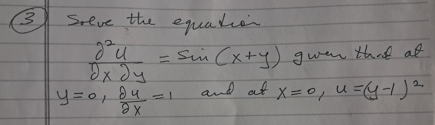 ③ Solve the equation
∂²u/∂x∂y = sin (x+y) given that at
y=0, ∂u/∂x =1 and at x=0, u=(y-1)²